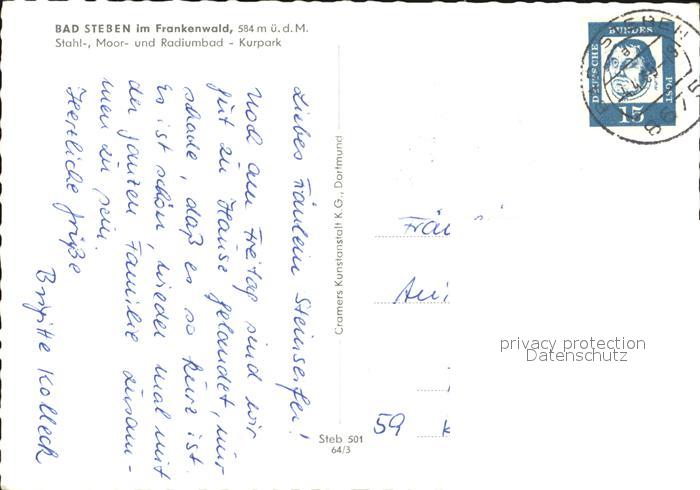 BAD STEBEN im Frankenwald, 584 m ü. d. M.
Stahl-, Moor- und Radiumbad - Kurpark
Liebes Fräulein Steinseifer!
Noch am Freitag sind wir
gut zu Hause gelandet, nur
schade, daß es so kurz ist.
Es ist schön, wieder mal mit
der ganzen Familie zusam-
men zu sein.
Herzliche Grüße
Brigitte Kolleck
Cramers Kunstanstalt K.G., Dortmund
Steb 501
64/3
DEUTSCHE
BUNDES
POST
15
STEBEN
Fräu
59
privacy protection
Datenschutz